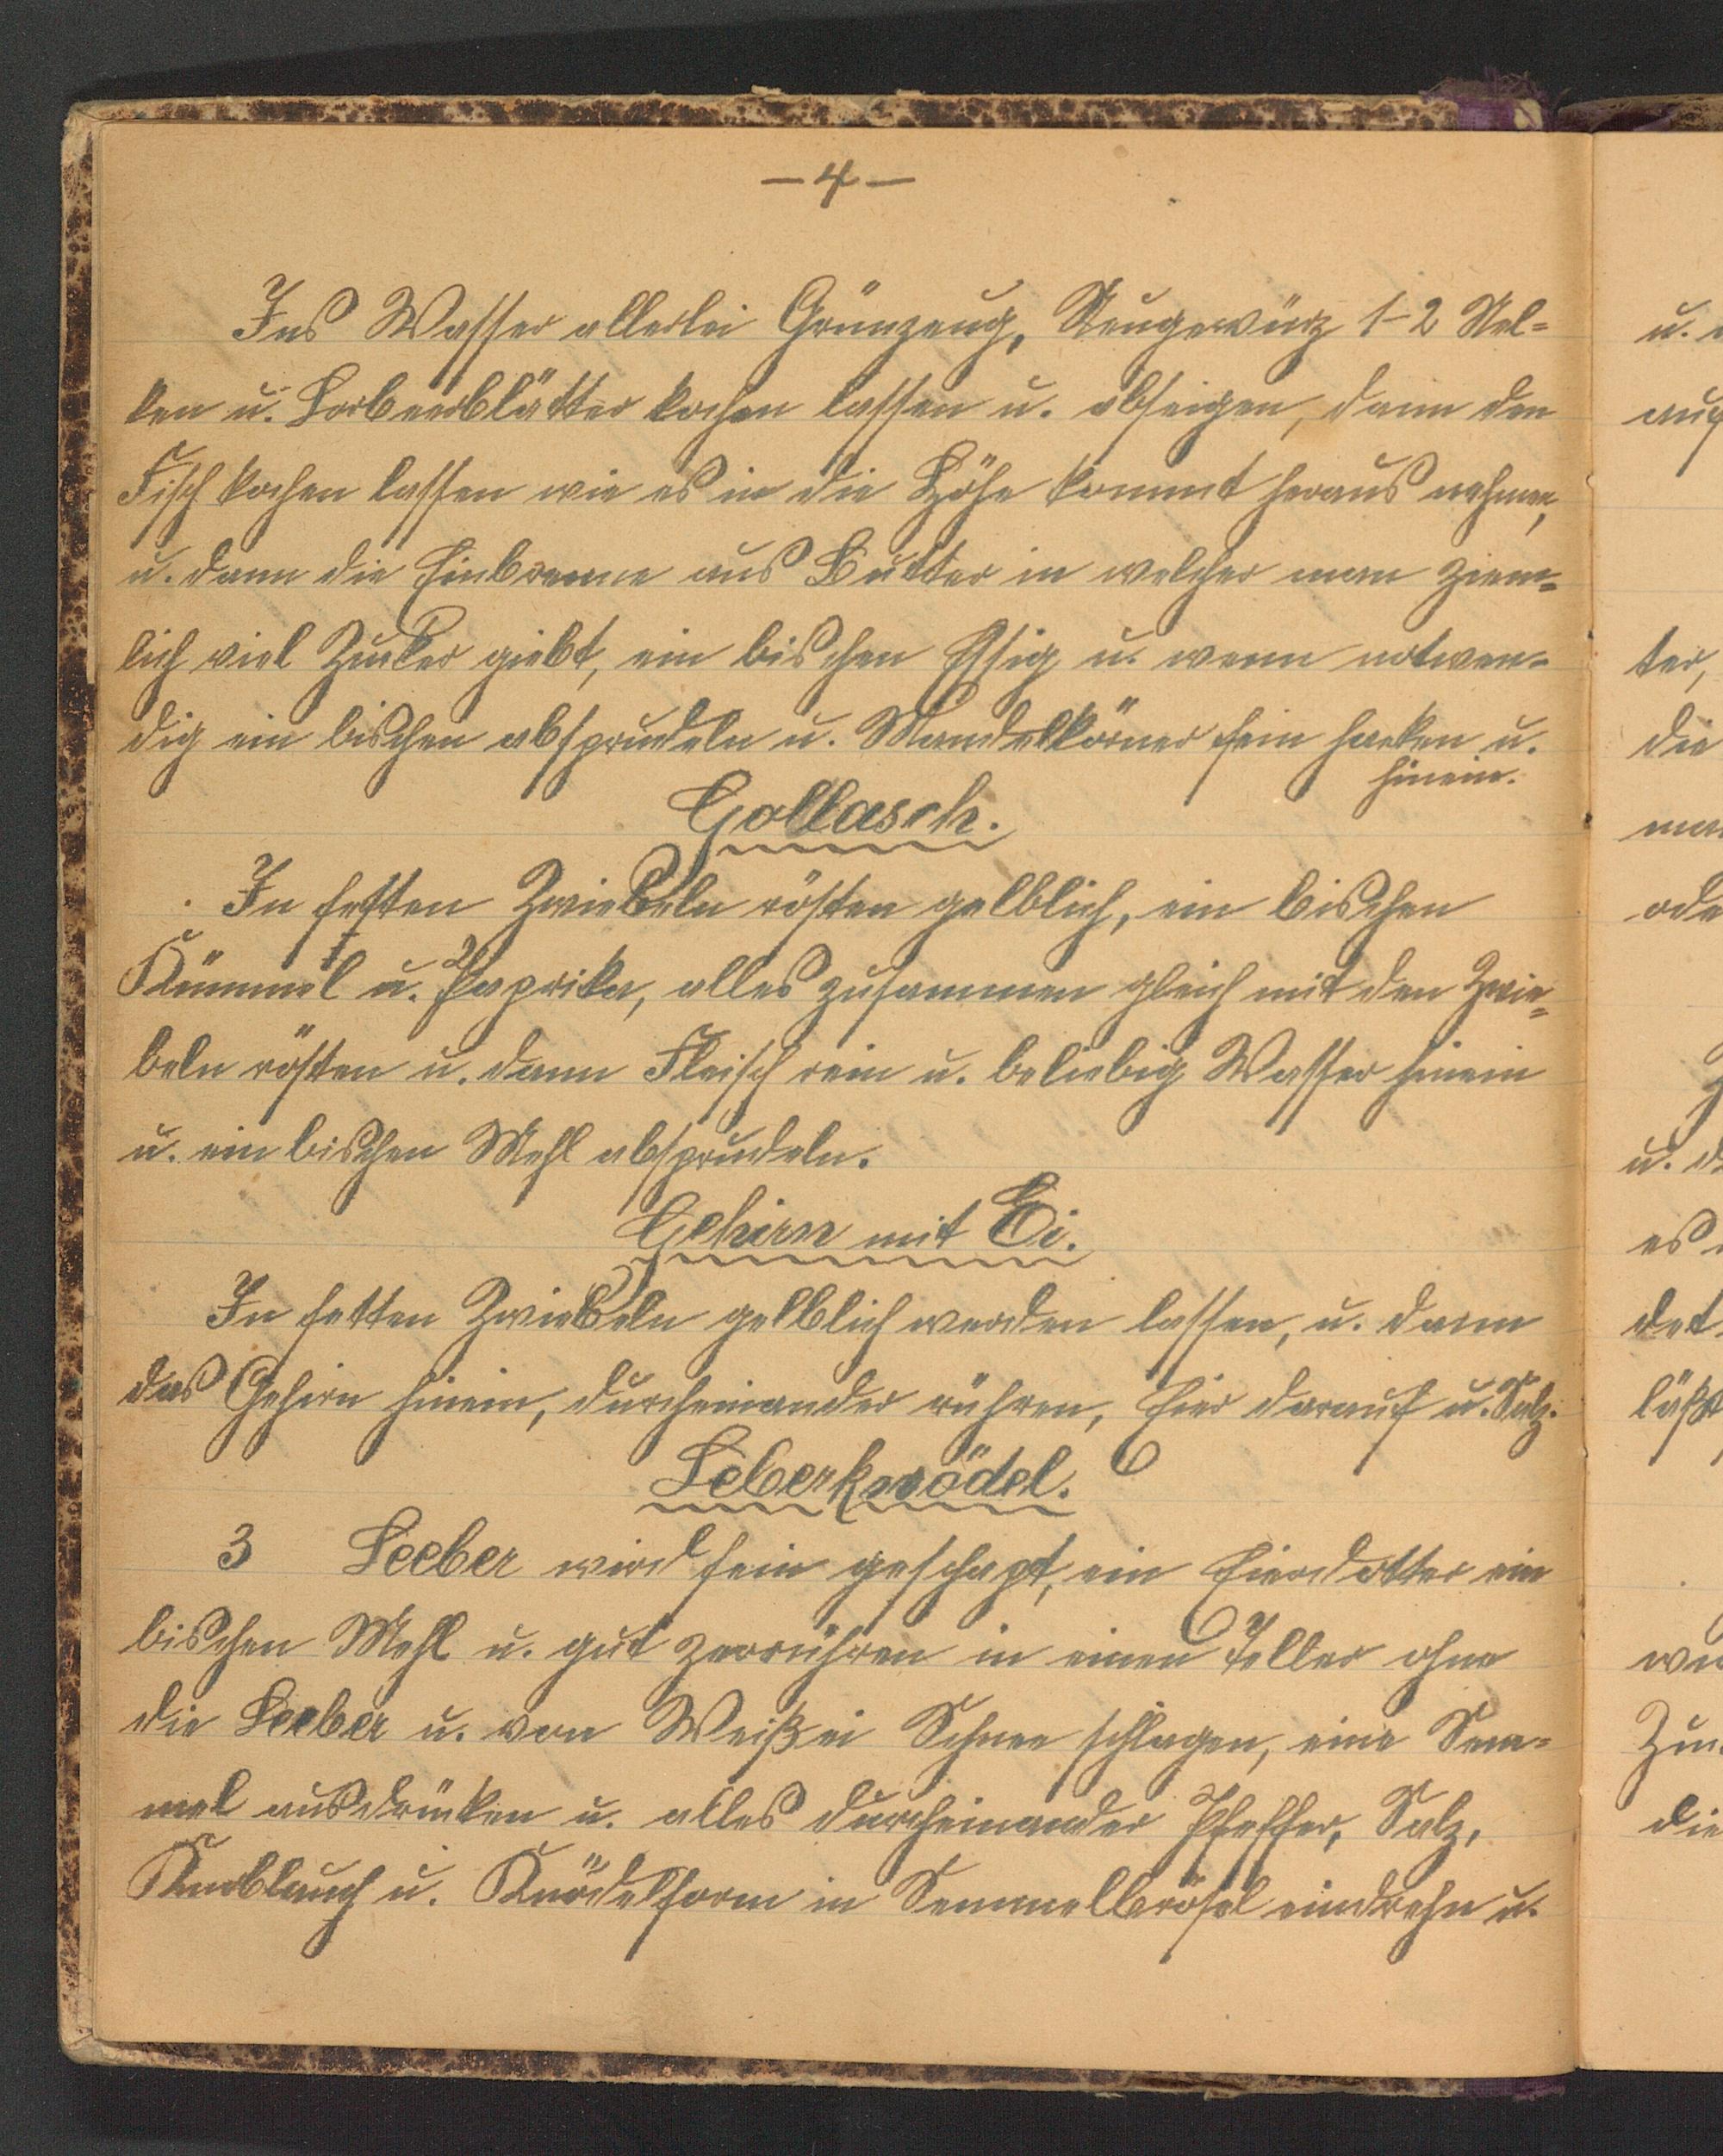 — 4 —
Ins Wasser allerlei Grünzeug, Neugewürz 1-2 Nel=
ken u. Lorbeerblätter kochen lassen u. abseigen, dann den
Fisch kochen lassen wie es in die Höhe kommt heraus nehmen,
u. dann die Einbrenne aus Butter in welcher man ziem=
lich viel Zucker giebt, ein bischen Essig u. wenn notwen=
dig ein bischen absprudeln u. Mandelkörner fein hacken u.
hinein.
Gollasch.
In fetten Zwiebeln rösten gelblich, ein bischen
Kümmel u. Paprika, alles zusammen gleich mit den Zwie=
beln rösten u. dann Fleisch rein u. beliebig Wasser hinein
u. ein bischen Mehl absprudeln.
Gehirn mit Ei.
In fetten Zwiebeln gelblich werden lassen, u. dann
das Gehirn hinein, durcheinander rühren, Eier darauf u. Salz.
Leberknödel.
3 Leeber wird fein geschapt, ein Eierdotter ein
bischen Mehl u. gut zerrühren in einen Teller ohne
die Leeber u. von Weißei Schnee schlagen, eine Sem=
mel ausdrücken u. alles durcheinander Pfeffer, Salz,
Knoblauch u. Knödelform in Semmelbrösel eindrehn u.